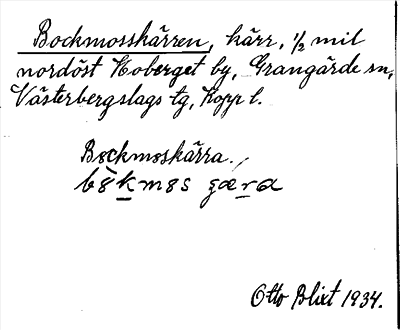 Bockmosskärren, kärr, 1/2 mil
nordöst Hoberget by, Grangärde sn,
Västerbergslags tg, Kopp l.
Bockmosskärra.
Otto Blixt 1934.